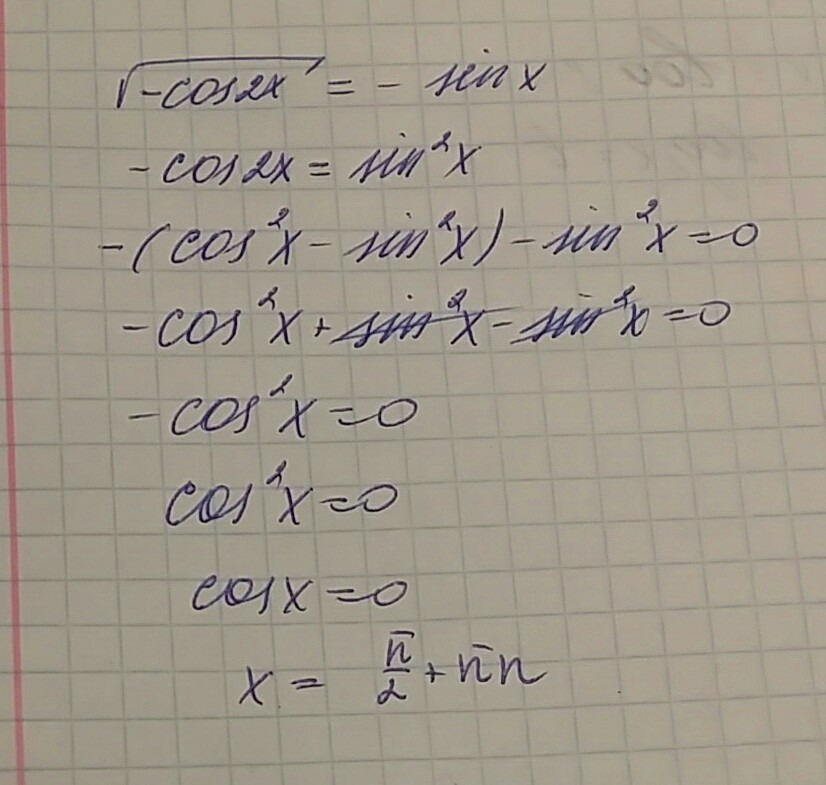 √(-cos2x) = - sin x
-cos2x = sin²x
-(cos²x - sin²x) - sin²x = 0
-cos²x + sin²x - sin²x = 0
-cos²x = 0
cos²x = 0
cosx = 0
x = π/2 + πn